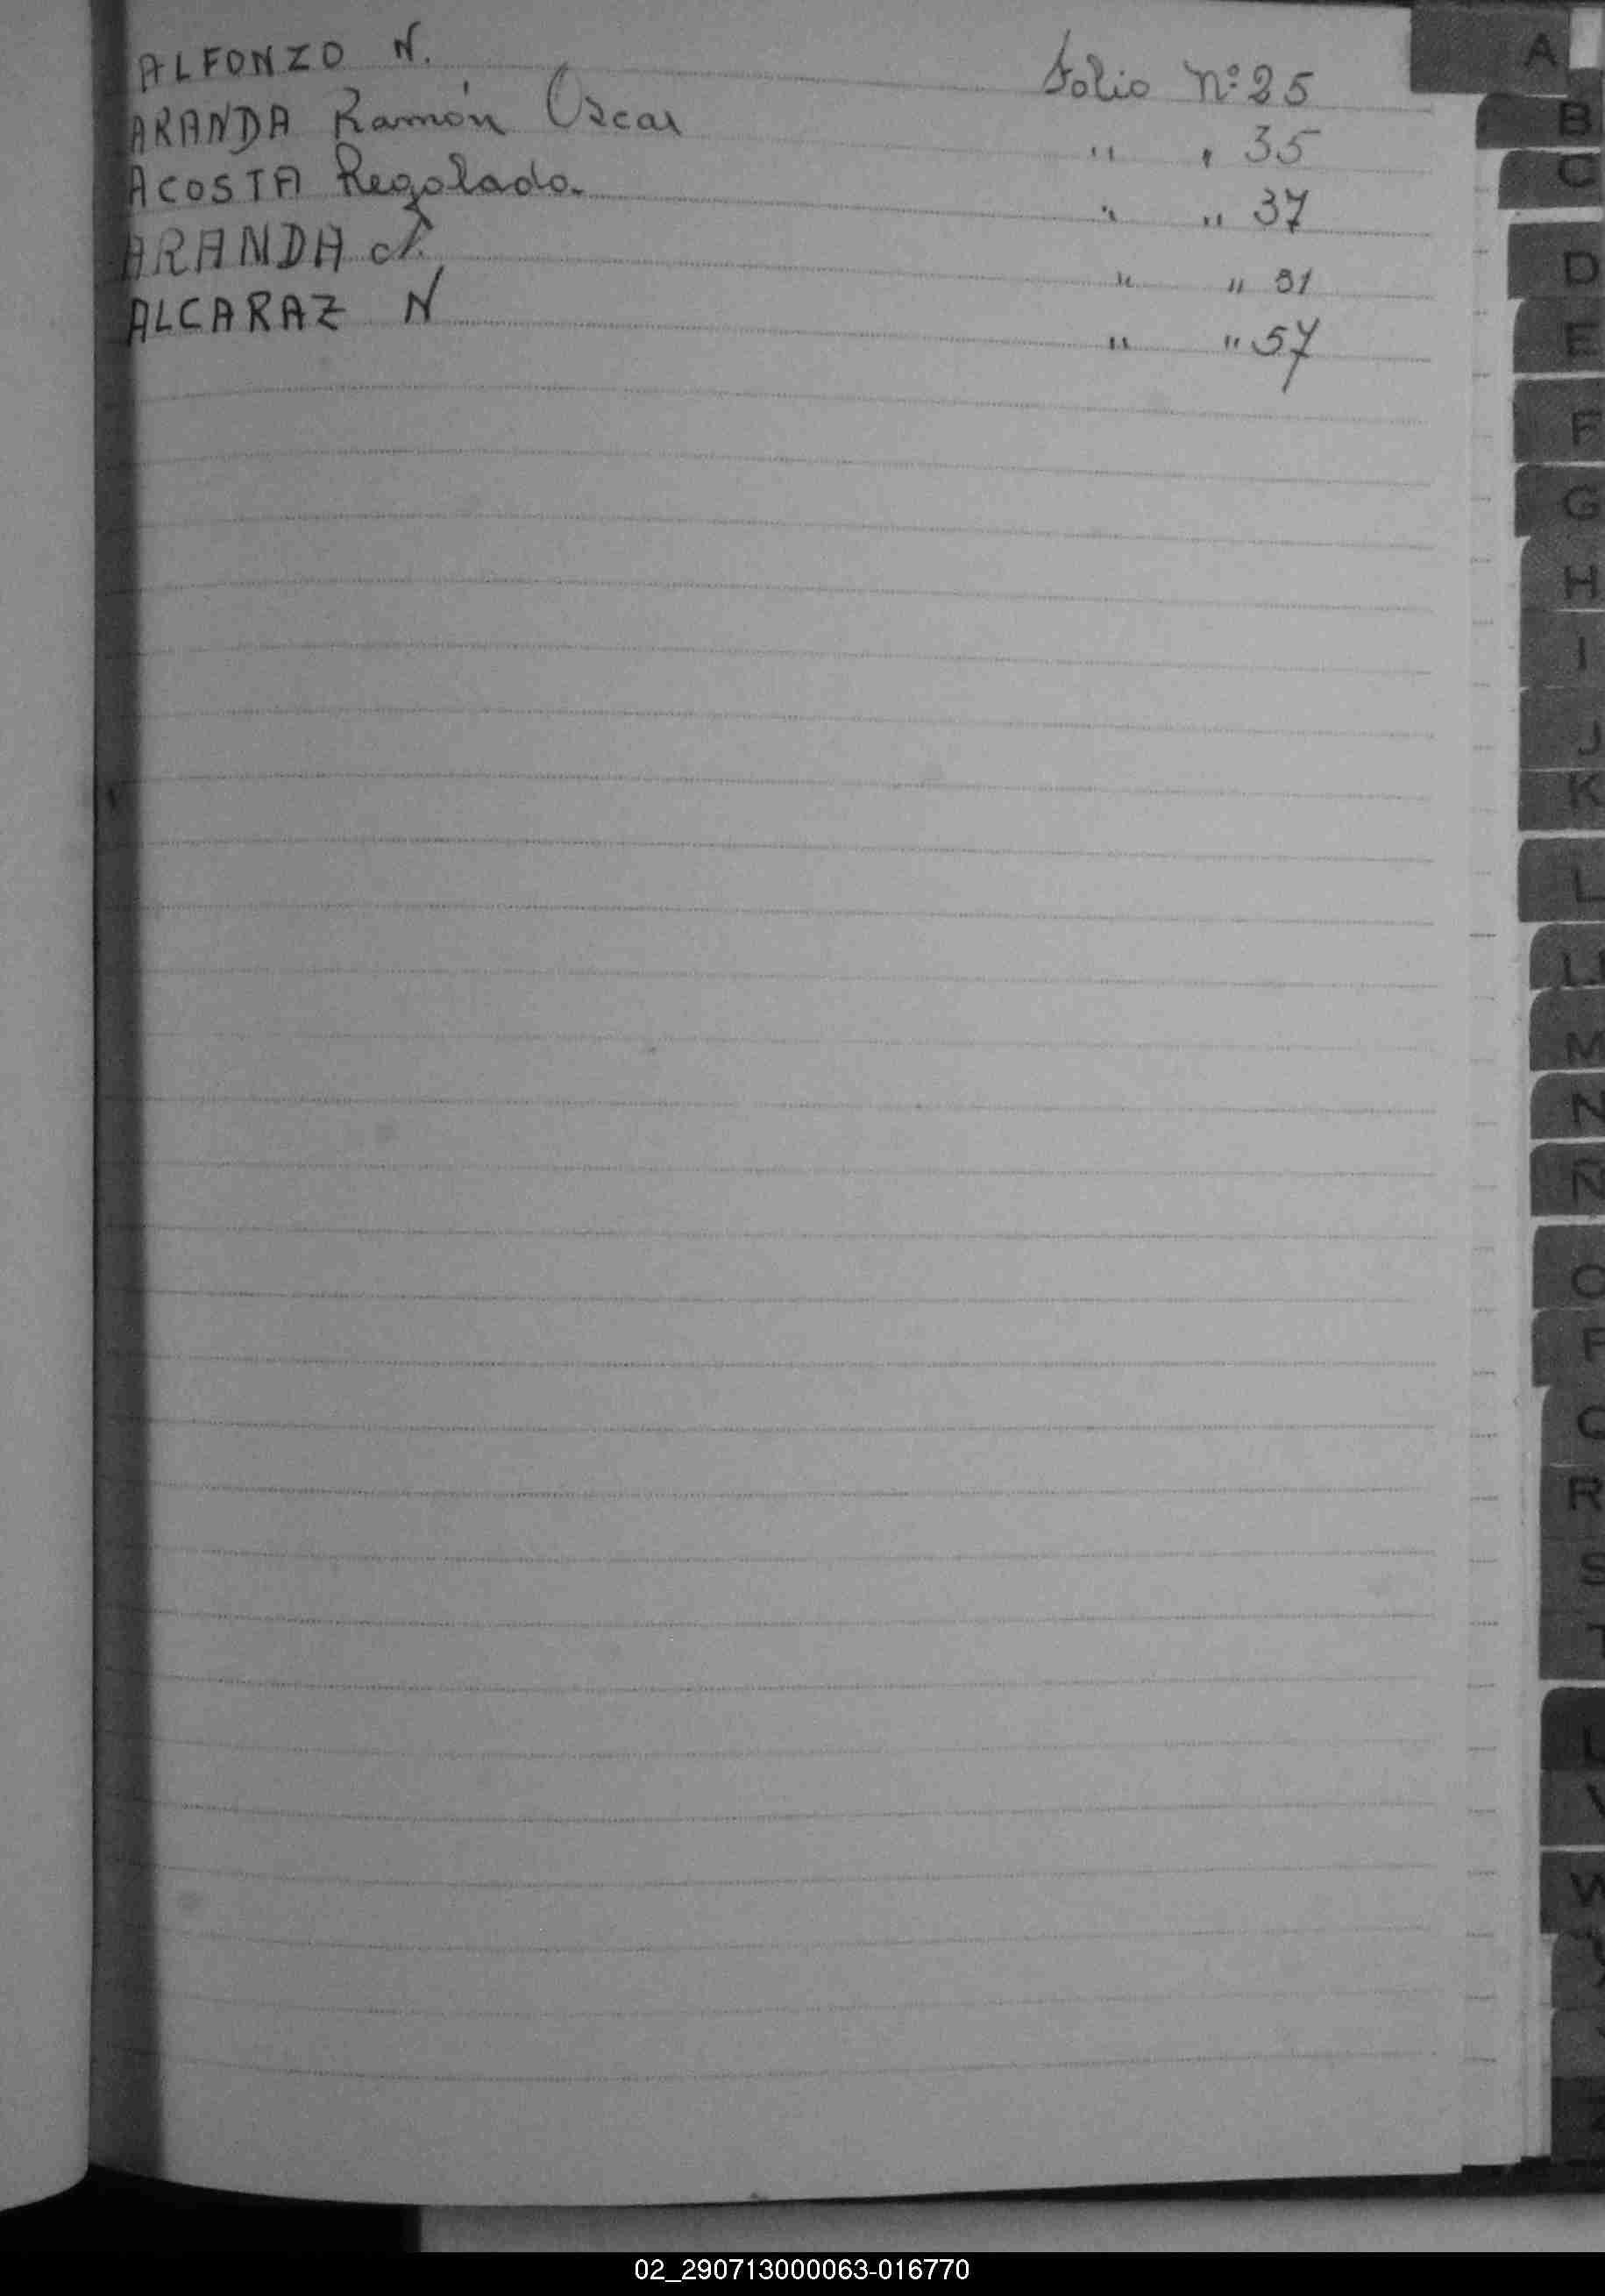 ALFONZO N. Folio Nº 25
ARANDA Ramón Oscar " " 35
ACOSTA Regolado. " " 37
ARANDA " "
ALCARAZ N " " 57
A
B
C
D
E
F
G
H
I
J
K
L
LL
M
N
Ñ
O
P
Q
R
S
T
U
V
W
02_290713000063-016770